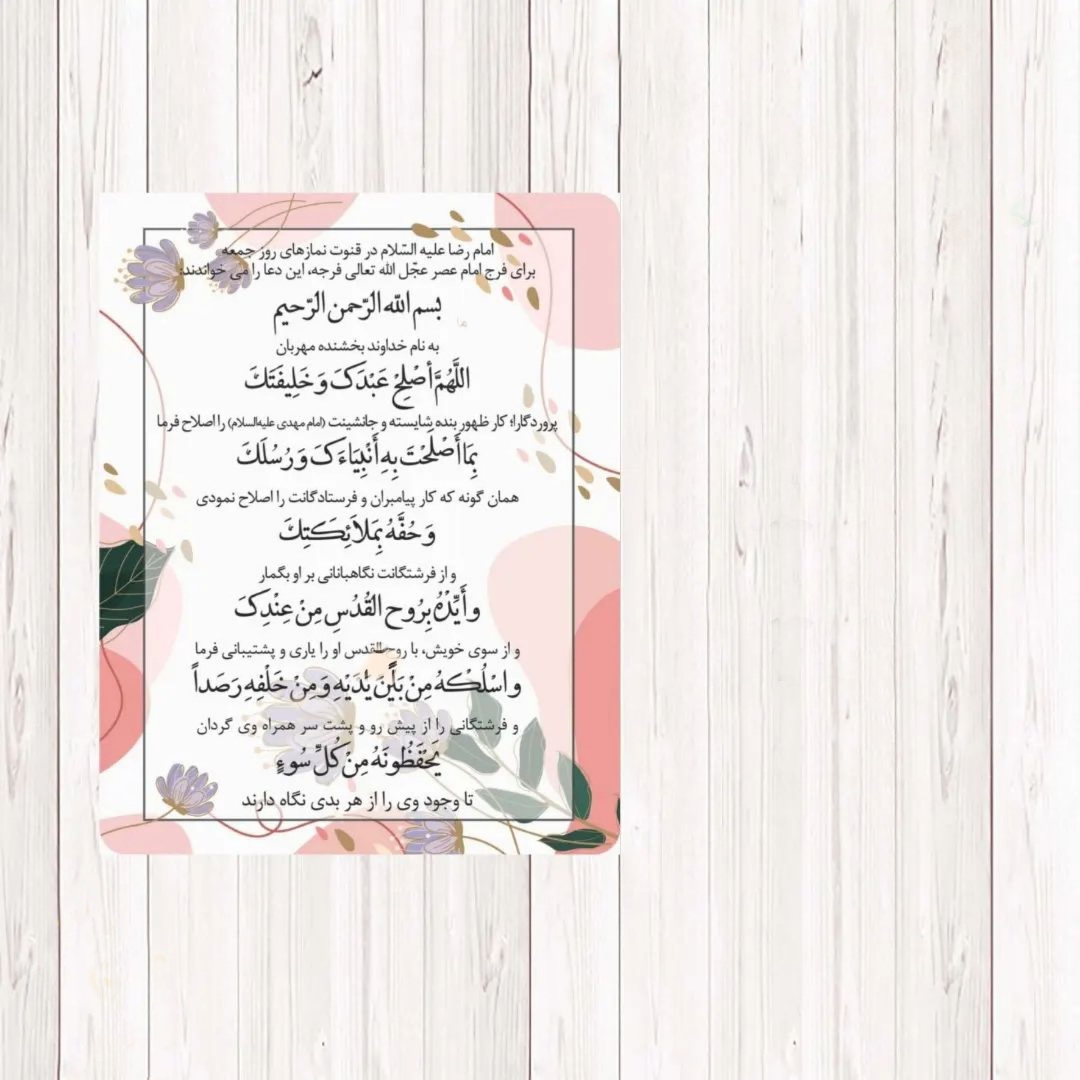 امام رضا علیه السّلام در قنوت نمازهای روز جمعه
برای فرج امام عصر عجّل الله تعالی فرجه، این دعا را می خواندند:
بسم الله الرّحمن الرّحیم
به نام خداوند بخشنده مهربان
اللَّهُمَّ أَصْلِحْ عَبْدَکَ وَ خَلِیفَتَكَ
پروردگارا؛ کار ظهور بنده شایسته و جانشینت (امام مهدی علیه‌السلام) را اصلاح فرما
بِمَا أَصْلَحْتَ بِهِ أَنْبِیَاءَکَ وَ رُسُلَكَ
همان گونه که کار پیامبران و فرستادگانت را اصلاح نمودی
وَ حُفَّهُ بِمَلاَئِکَتِكَ
و از فرشتگانت نگاهبانانی بر او بگمار
و أَیِّدْهُ بِرُوحِ القُدُسِ مِنْ عِنْدِکَ
و از سوی خویش، با روح‌القدس او را یاری و پشتیبانی فرما
و اسْلُكْهُ مِنْ بَيْنِ يَدَيْهِ وَ مِنْ خَلْفِهِ رَصَداً
و فرشتگانی را از پیش رو و پشت سر همراه وی گردان
یَحْفَظُونَهُ مِنْ کُلِّ سُوءٍ
تا وجود وی را از هر بدی نگاه دارند